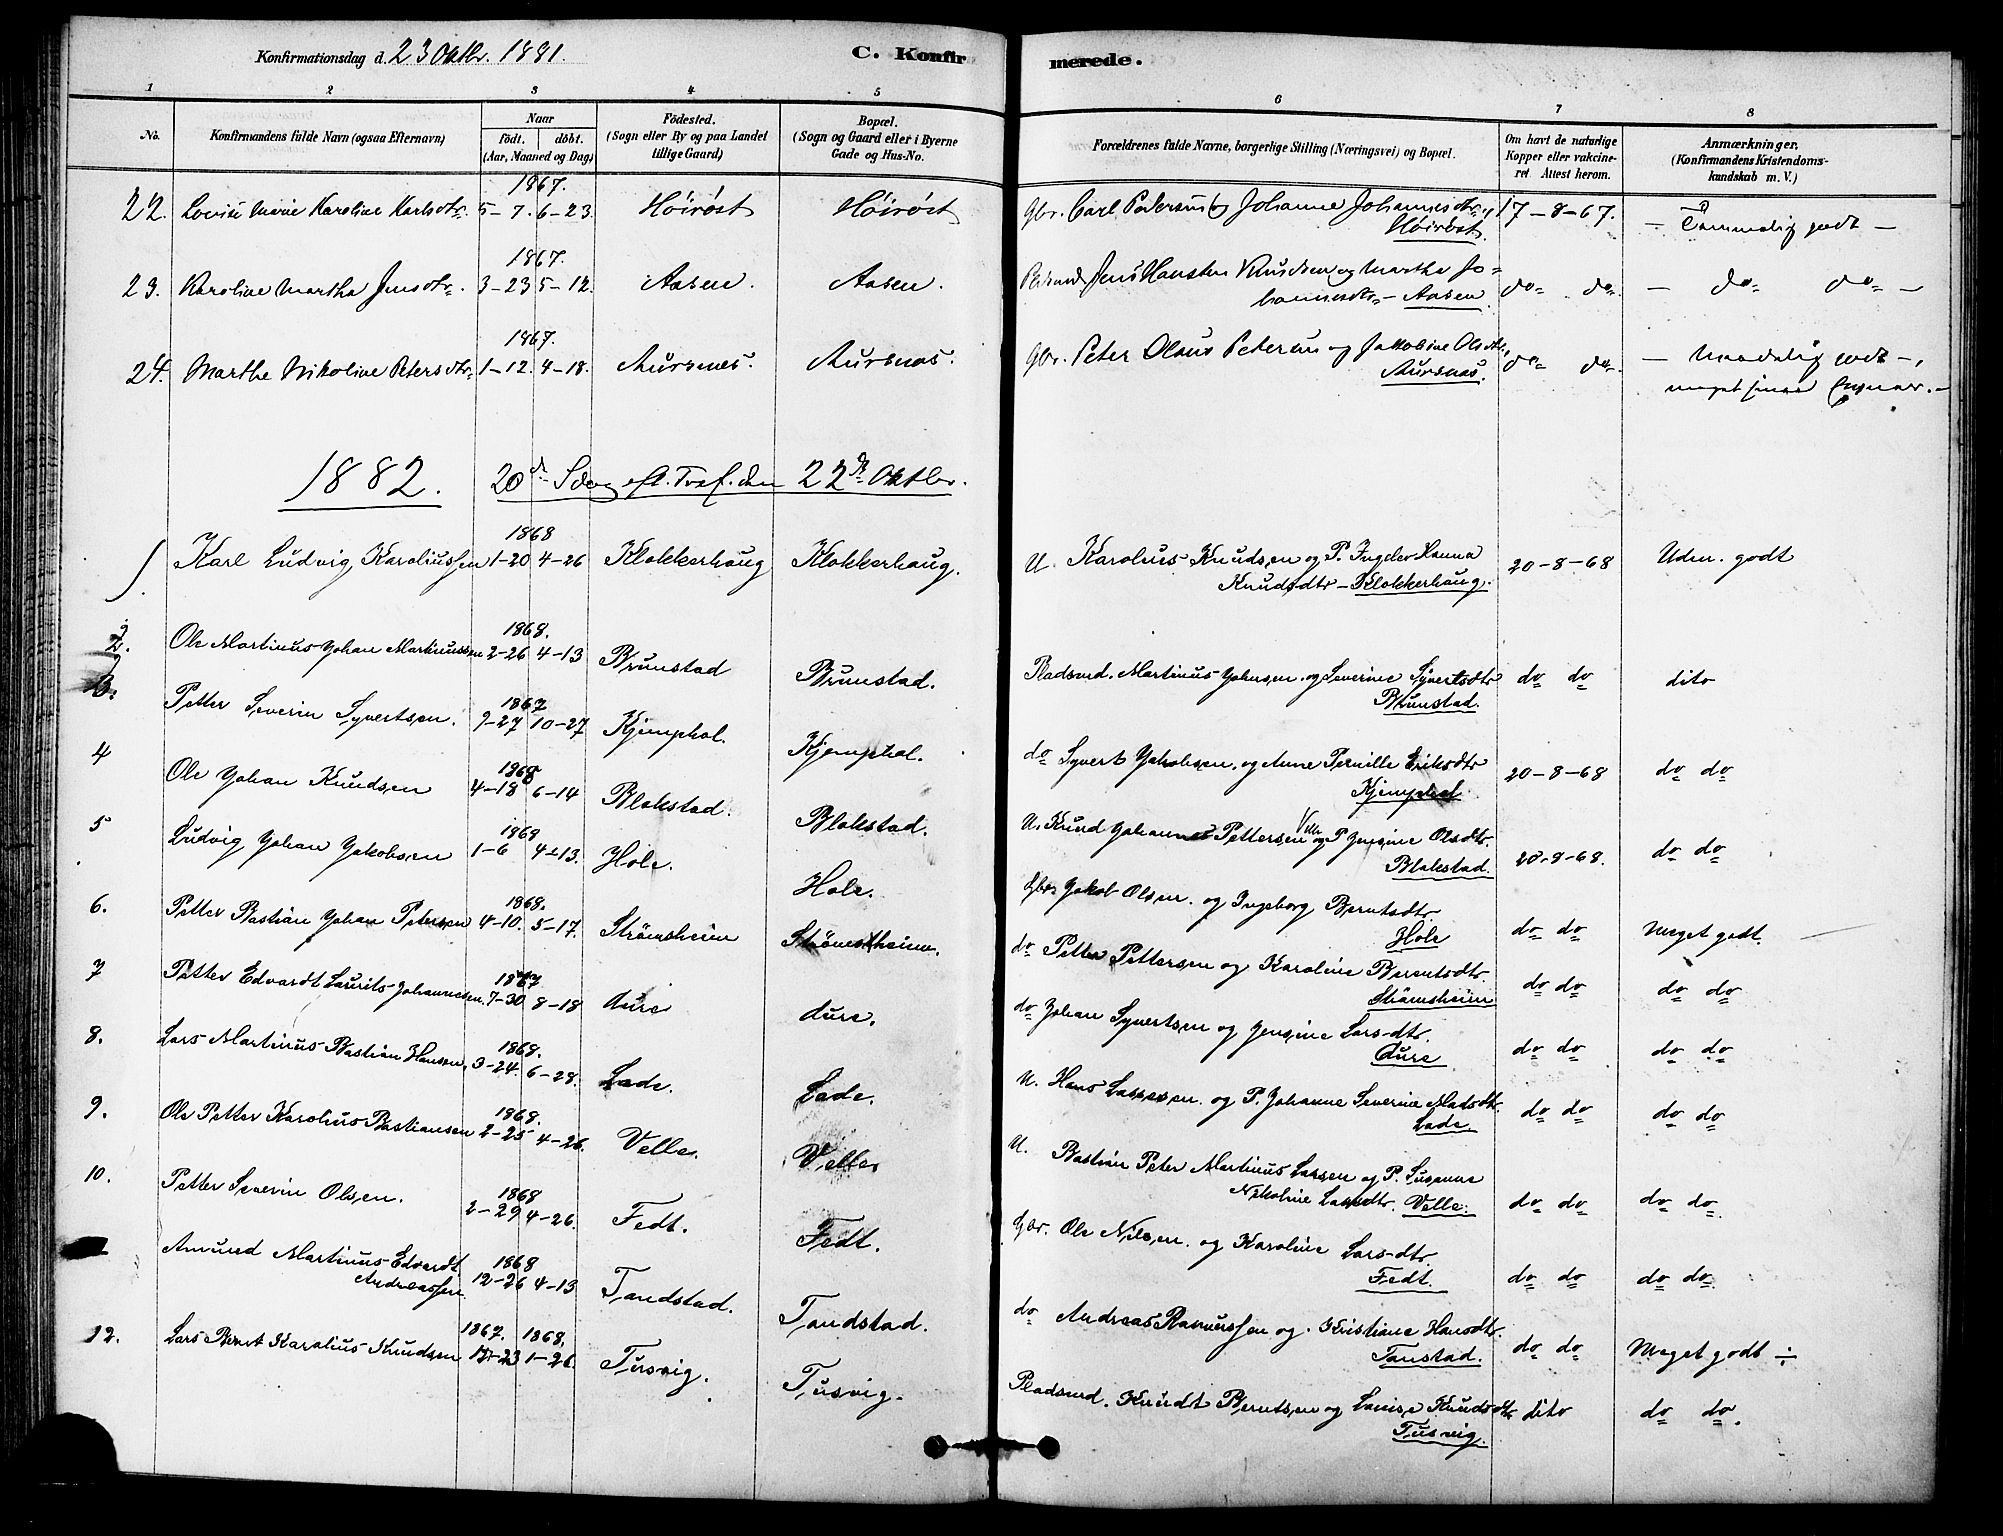 Konfirmationsdag d. 23 Oktbr. 1881.
C. Konfirmerede.
1 2 3 4 5 6 7 8
No.
Konfirmandens fulde Navn (ogsaa Efternavn)
Naar
födt. döbt.
(Aar, Maaned og Dag)
Födested.
(Sogn eller By og paa Landet
tillige Gaard)
Bopæl.
(Sogn og Gaard eller i Byerne
Gade og Hus-No.
Forældrenes fulde Navne, borgerlige Stilling (Næringsvei) og Bopæl.
Om havt de naturlige
Kopper eller vakcine-
ret Attest herom.
Anmærkninger.
(Konfirmandens Kristendoms-
kundskab m. V.)
1867.
22. Lovise Marie Karoline Karlsdtr. 5-7. 6-23. Höiröst Höiröst Gbr. Carl Pedersen og Johanne Johannesdtr. 17-8-67. - Temmelig godt -
Höiröst.
1867.
23. Karoline Martha Jensdtr. 3-23 5-12. Aasen. Aasen. Jens Hansten Knudsen og Martha Jo-
hannesdtr - Aasen do do - do do -
1867.
24. Marthe Nikoline Petersdtr 1-12. 4-18. Aursnes. Aursnas. Gbr. Peter Olaus Petersen og Jakobine Olsdtr, do do - Maadelig godt -,
Aursnas. meget
1882. 20de Sdag eft. Tref. den 22de Oktbr.
1868
1. Karl Ludvig Karoliussen 1-20 4-26 Klokkerhaug Klokkerhaug. U. Karolus Knudsen og P. Ingeler Hanna 20-8-68 Uden. godt
Knudsdtr - Klokkerhaug.
1868.
2. Ole Martinus Johan Martinussen 2-26 4-13 Brunstad Brunstad. Pladsmd. Martinus Johnsen og Severine Syvertsdtr do do dito
Brunstad.
1867
3. Petter Severin Syvertsen. 9-27 10-27 Kjemphol. Kjemphol. do Syvert Jakobsen. og Anne Pernille Eriksdtr 20-8-68 do do
Kjemphol
1868
4 Ole Johan Knudsen 4-18 6-14 Blakstad. Blakstad. U. Knud Johannes Pettersen Velle og P. Jensine Olsdtr. 20-8-68. do do
Blakstad.
1868
5 Ludvig Johan Jakobsen 1-6 4-13. Hole. Hole. Gbr. Jakob Olsen. og Ingeborg Berntsdtr. do do Meget godt.
Hole
1868.
6. Petter Bastian Johan Petersen 4-10. 5-17. Strömsheim Strömsheim. do Petter Pettersen og Karoline Berentsdtr. do do do do
Strömsheim
1867
7 Petter Edvardt Laurits Johannesen. 7-30 8-18 Aure Aure. do Johan Syvertsen og Jensine Larsdtr. do do do do
Aure
1868.
8. Lars Martinus Bastian Hansen. 3-24. 6-28. Lade. Lade. U. Hans Lassesen. og P. Johanne Severine Madsdtr. do do do do
Lade.
1868.
9. Ole Petter Karolius Bastiansen 2-25 4-26. Velle. Velle U. Bastian Peter Martinus Larsen og P. Susanne
Nikoline Larsdtr. Velle. do do do do.
1868
10. Petter Severin Olsen. 2-29 4-26. Fedt. Fedt. Gbr. Ole Nilsen. og Karoline Larsdtr. do do do do.
Fedt.
1868
Amund Martinus Edvardt 12-26 4-13 Tandstad. Tandstad. do Andreas Rasmussen og. Kristiane Hansdtr. do do Meget godt ÷
Andreassen Tanstad.
1867. 1868.
12. Lars Bernt Karolius Knudsen 12-23 1-26. Tusvig. Tusvig. Pladsmd. Knudt Berntsen og Lovise Knudsdtr dito do do.
Tusvig.